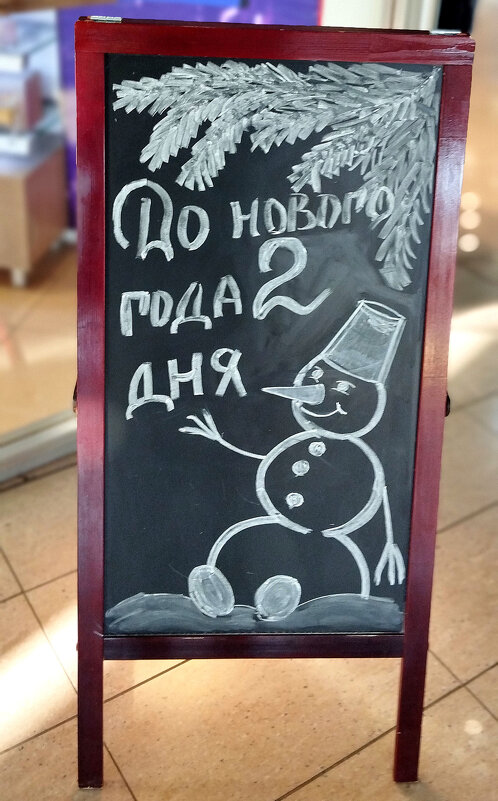 До нового
года 2
дня